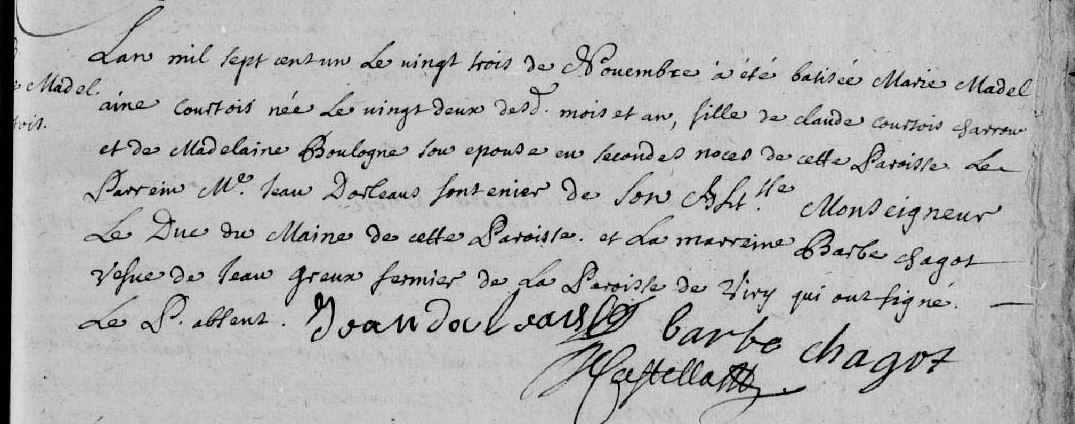 Lan mil sept cent un Le vingt trois de Novembre a été batisée Marie Madel
e Madel.
aine Courtois née Le vingt deux desd. mois et an, fille de claude courtois charron
tois.
et de Madelaine Boulogne son epouse en secondes noces de cette Paroisse. Le
Parrein Me. Jean Dorleans fontenier de Son Alt.sse Monseigneur
Le Duc du Maine de cette Paroisse. et La marreine Barbe chagot
vefue de Jean greux fermier de La Paroisse de Viry qui ont signé.
Le P. absent. Jean dorleans barbe chagot